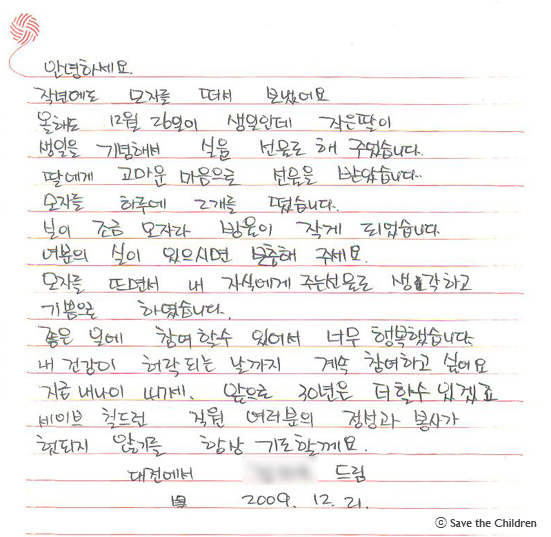 안녕하세요.
작년에도 모자를 떠서 보냈어요
올해도 12월 26일이 생일인데 작은딸이
생일을 기념해서 실을 선물로 해 주었습니다.
딸에게 고마운 마음으로 선물을 받았습니다.
모자를 하루에 2개를 떴습니다.
실이 조금 모자라 방울이 작게 되었습니다
여분의 실이 있으시면 보충해 주세요.
모자를 뜨면서 내 자식에게 주는선물로 생각하고
기쁨으로 하였습니다.
좋은 일에 참여할수 있어서 너무 행복했습니다
내 건강이 허락되는 날까지 계속 참여하고 싶어요
지금 내나이 앞으로 30년은 더할수 있겠죠
세이브 칠드런 직원 여러분의 정성과 봉사가
헛되지 않기를 항상 기도할께요.
대전에서 드림
2009. 12. 21.
ⓒ Save the Children